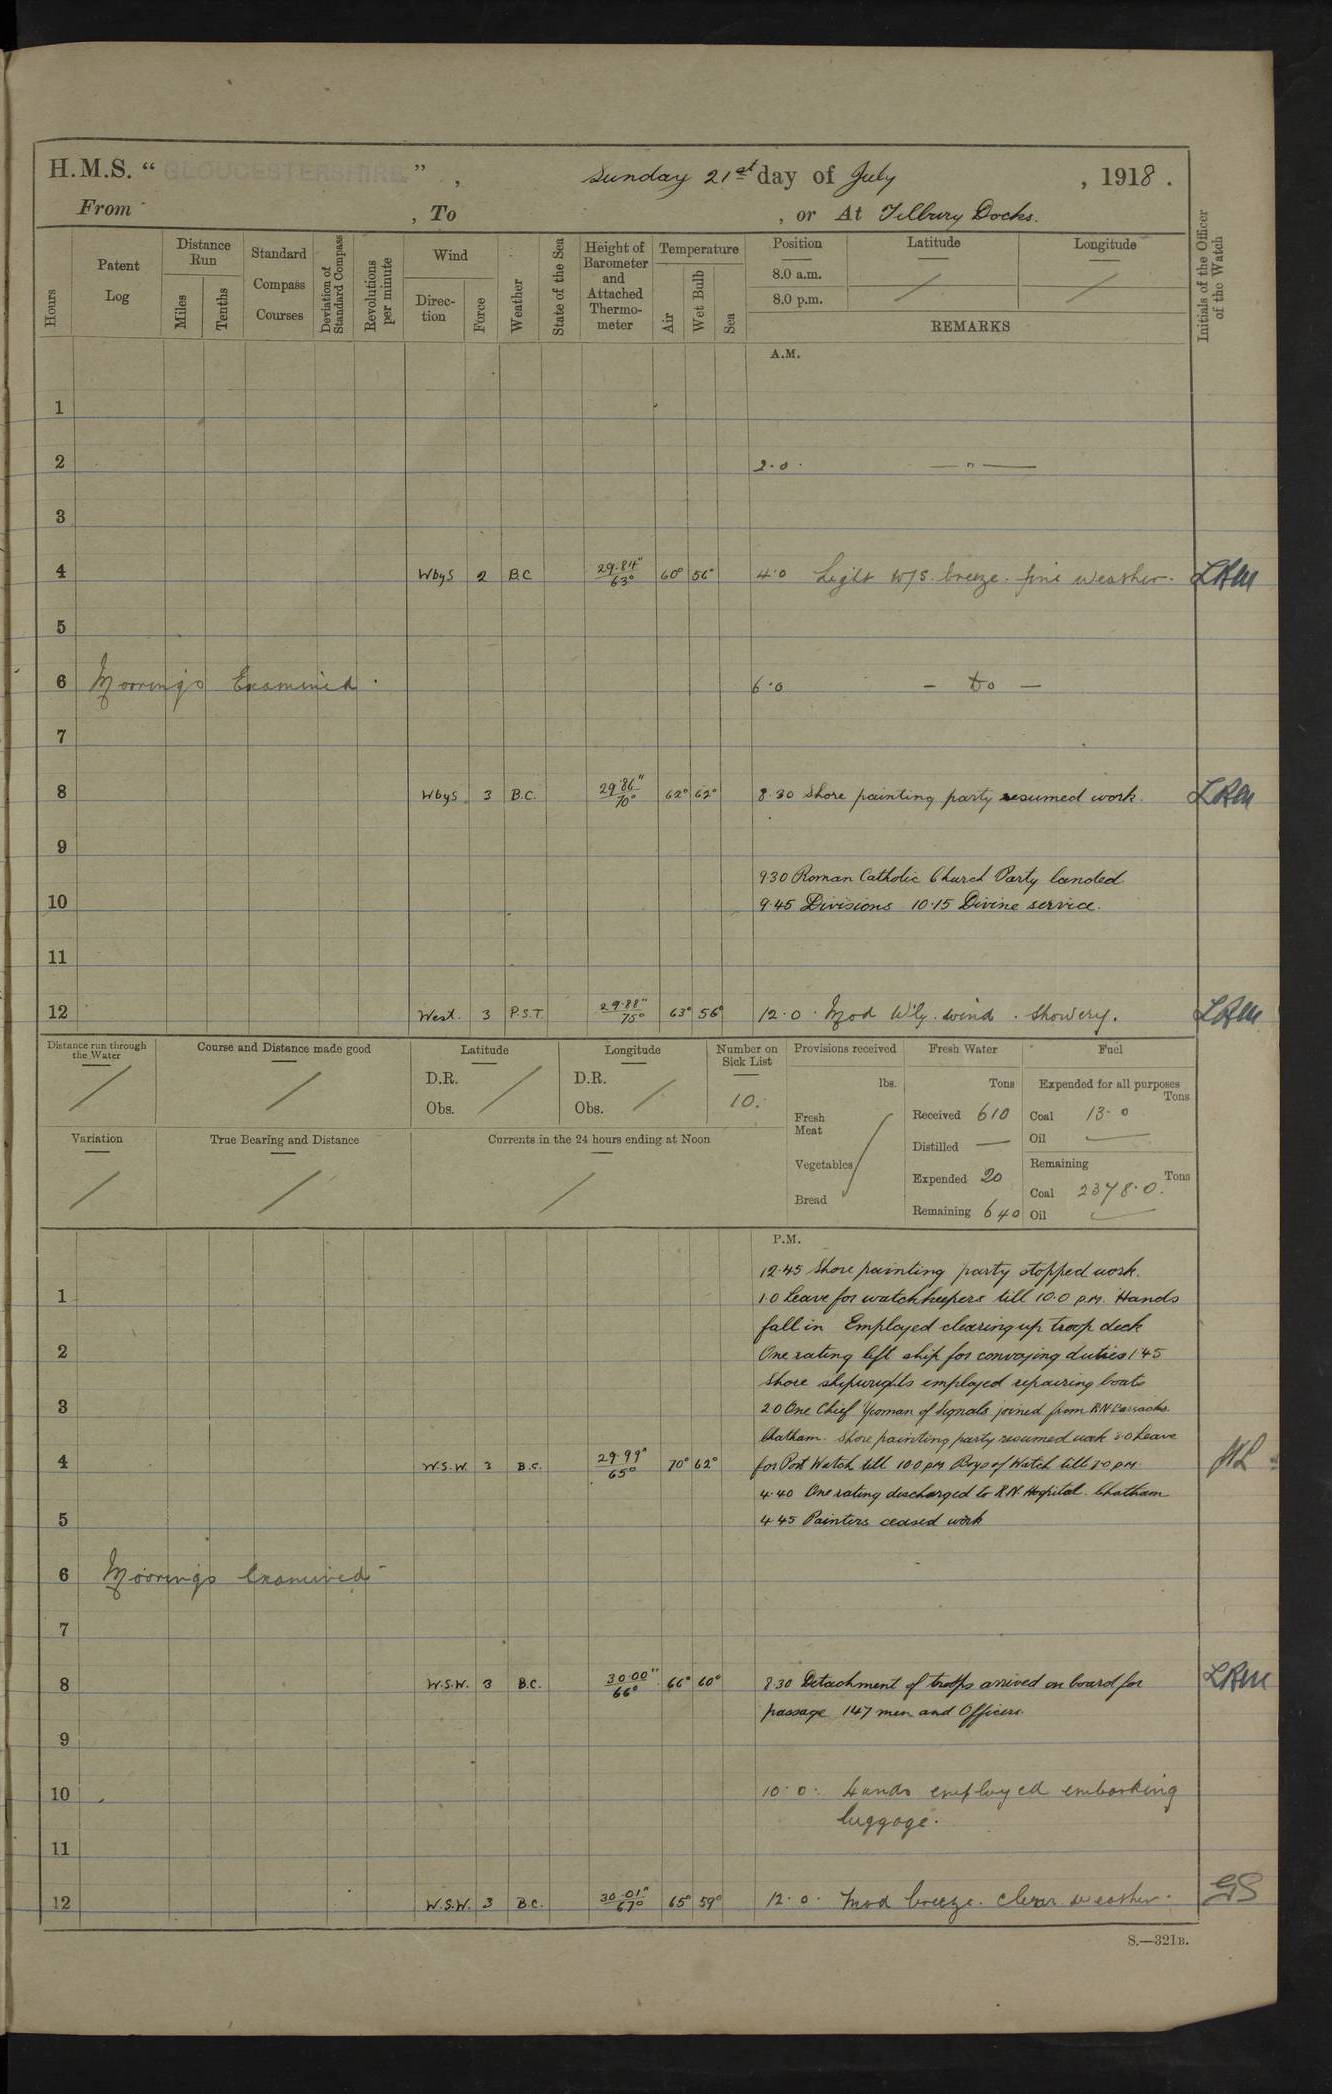 H.M.S. “ GLOUCESTERSHIRE ” , Sunday 21st day of July , 1918 .
From , To , or At Tilbury Docks.
Hours
Patent Log
Distance Run
Miles
Tenths
Standard Compass Courses
Deviation of Standard Compass
Revolutions per minute
Wind
Direc-tion
Force
Weather
State of the Sea
Height of Barometer and Attached Thermo-meter
Temperature
Air
Wet Bulb
Sea
Position Latitude Longitude
8.0 a.m.
8.0 p.m.
REMARKS
Initials of the Officer of the Watch
A.M.
1
2 2.0. — " —
3
4 WbyS 2 B.C 29.84" 63° 60° 56° 4.0 Light W/S. breeze. fine weather. LRM
5
6 Moorings Examined. 6.0 — Do —
7
8 WbyS 3 B.C. 29.86" 70° 62° 62° 8.30 Shore painting party resumed work. LRM
9
9.30 Roman Catholic Church Party landed
10 9.45 Divisions 10.15 Divine service.
11
12 West. 3 P.S.T. 29.88" 75° 63° 56° 12.0. Mod W'ly. wind. showery. LRM
Distance run through the Water
Course and Distance made good
Latitude
D.R.
Obs.
Longitude
D.R.
Obs.
Number on Sick List
10.
Provisions received
lbs.
Fresh Meat
Vegetables
Bread
Fresh Water
Tons
Received 610
Distilled —
Expended 20
Remaining 640
Fuel
Expended for all purposes
Tons
Coal 13.0
Oil —
Remaining
Tons
Coal 2378.0.
Oil
Variation
True Bearing and Distance
Currents in the 24 hours ending at Noon
P.M.
12.45 Shore painting party stopped work.
1 1.0 Leave for watchkeepers till 10.0 p.m. Hands
fall in Employed clearing up troop deck
2 One rating left ship for convoying duties 1.45
Shore shipwrights employed repairing boats
3 2.0 One Chief Yeoman of Signals joined from RN Barracks
Chatham. Shore painting party resumed work Leave
4 W.S.W. 3 B.C. 29.99" 65° 70° 62° for Port Watch till 10.0 p.m. Boys of Watch till p.m.
4.40 One rating discharged to R.N. Hospital. Chatham
5 4.45 Painters ceased work
6 Moorings Examined
7
8 W.S.W. 3 B.C. 30.00" 66° 66° 60° 8.30 Detachment of troops arrived on board for LRM
passage 147 men and Officers.
9
10 10.0. Hands employed embarking
luggage.
11
12 W.S.W. 3 B.C. 30.01" 67° 65° 59° 12.0. Mod breeze. clear weather. GS
S.—321B.